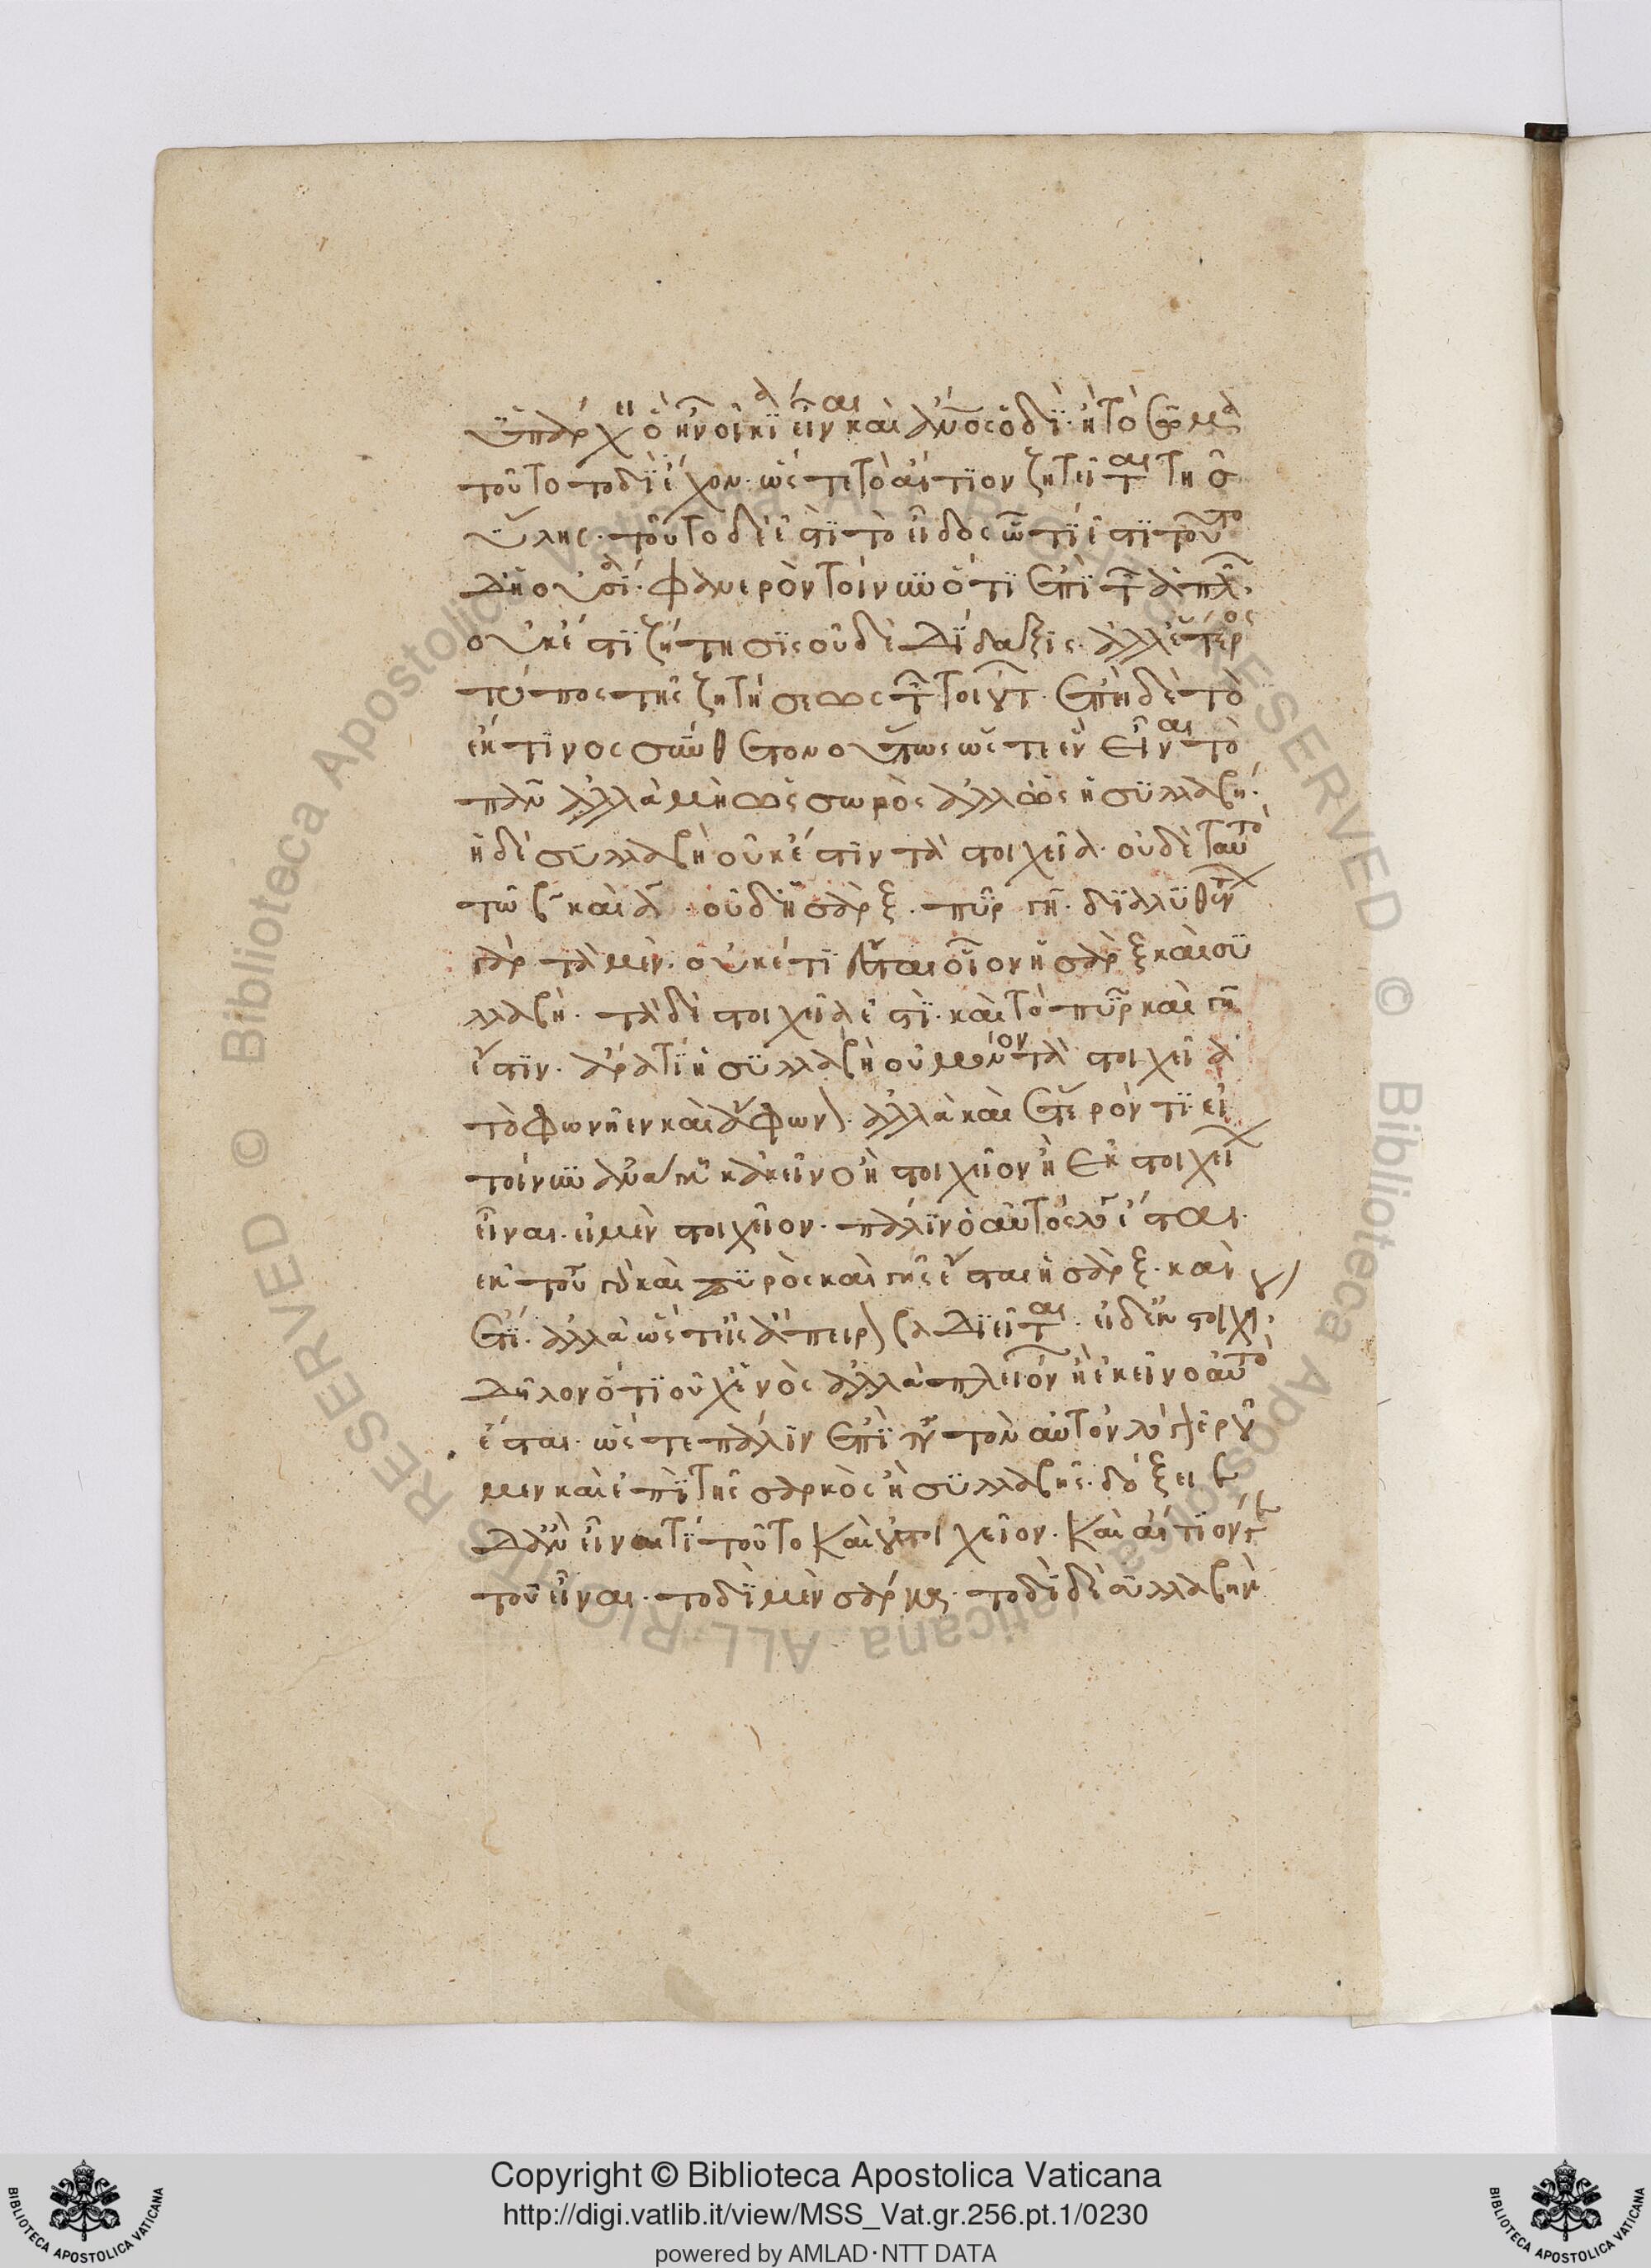 ὑπάρχει ὃ ἦν οἰκίᾳ εἶναι καὶ ἄνθρωπος ὁδὶ ἢ τὸ σῶμα
τοῦτο τοδὶ ἔχον. ὥστε τὸ αἴτιον ζητεῖται τῆς
ὕλης. τοῦτο δ' ἐστὶ τὸ εἶδος ὧ τί ἐστι τοῦτο
δ' ἡ οὐσία. φανερὸν τοίνυν ὅτι ἐπὶ τῶν ἁπλῶν
οὐκ ἔστι ζήτησις οὐδὲ δίδαξις. ἀλλ' ἕτερος
τρόπος τῆς ζητήσεως τῶν τοιούτων. ἐπεὶ δὲ τὸ
ἔκ τινος σύνθετον οὕτως ὥστε ἓν εἶναι τὸ
πᾶν ἀλλὰ μὴ ὡς σωρὸς ἀλλ' ὡς ἡ συλλαβή.
ἡ δὲ συλλαβὴ οὐκ ἔστιν τὰ στοιχεῖα. οὐδὲ ταὐτὸ
τῶ β καὶ α. οὐδ' ἡ σὰρξ. πῦρ γῆ. διαλυθέντων
γὰρ τὰ μὲν. οὐκέτι ἔσται οἷον ἡ σὰρξ καὶ συ
λλαβή. τὰ δὲ στοιχεῖα ἐστί. καὶ τὸ πῦρ καὶ γῆ
ἔστιν. ἄρα τι ἡ συλλαβὴ οὐ μόνον τὰ στοιχεῖα
τὸ φωνῆεν καὶ ἄφωνον. ἀλλὰ καὶ ἕτερόν τι. εἰ
τοίνυν ἀνάγκη κἀκεῖνο ἢ στοιχεῖον ἢ ἐκ στοιχείων
εἶναι. εἰ μὲν στοιχεῖον. πάλιν ὁ αὐτὸς λόγος ἔσται.
ἐκ τούτου γὰρ καὶ πυρὸς καὶ γῆς ἔσται ἡ σὰρξ. καὶ
ἔτι. ἀλλὰ ὥστ' εἰς ἄπειρον βαδιεῖται. εἰ δὲ ἐκ στοιχείου
δῆλον ὅτι οὐχ ἑνὸς ἀλλὰ πλειόνων ἢ ἐκεῖνο αὐτὸ
ἔσται. ὥστε πάλιν ἐπὶ τούτου τὸν αὐτὸν λόγον ἐροῦ
μεν καὶ ἐπὶ τῆς σαρκὸς ἢ συλλαβῆς. δόξειε
δ' ἂν εἶναι τὶ τοῦτο καὶ οὐ στοιχεῖον. καὶ αἴτιόν γε
τοῦ εἶναι. τοδὶ μὲν σάρκα. τοδὶ δὲ συλλαβήν
Copyright © Biblioteca Apostolica Vaticana
http://digi.vatlib.it/view/MSS_Vat.gr.256.pt.1/0230
powered by AMLAD·NTT DATA